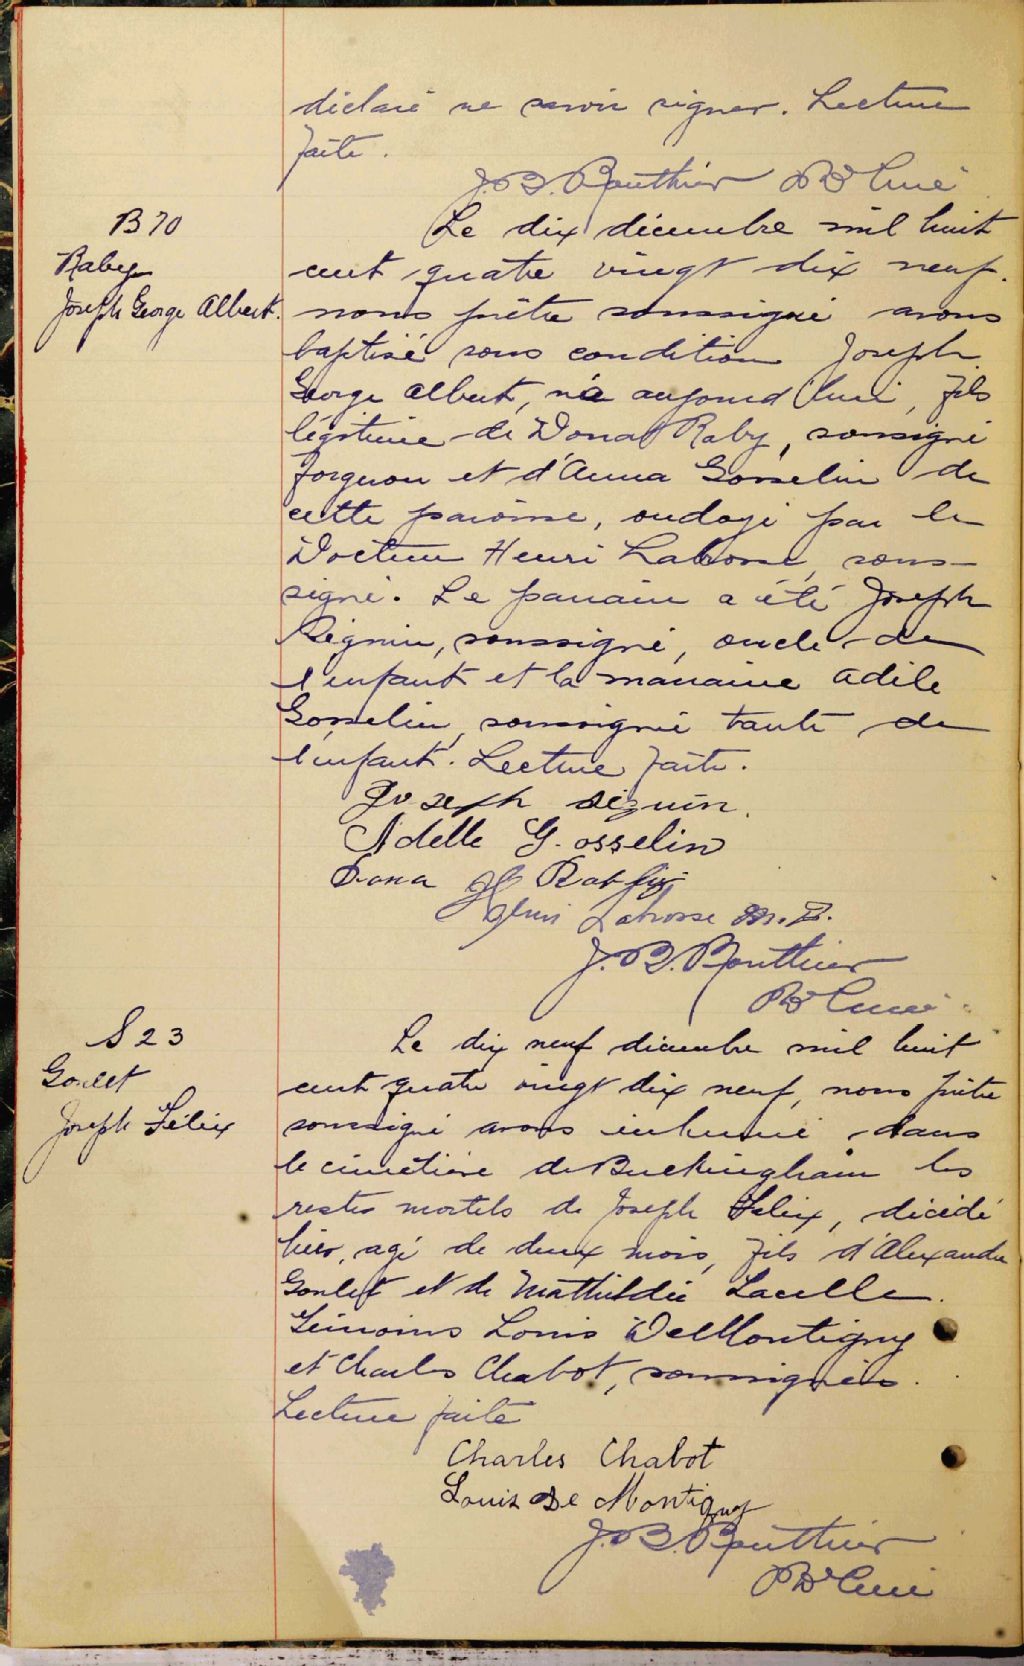 déclaré ne savoir signer. Lecture
faite.
J.B. Routhier Ptre Curé
B 70
Raby
Joseph George Albert.
Le dix décembre mil huit
cent quatre vingt dix neuf.
nous prêtre soussigné avons
baptisé sous condition Joseph
George Albert, né aujourd'hui, fils
légitime de Dona Raby, soussigné
forgeron et d'Anna Gosselin de
cette paroisse, ondoyé par le
Docteur Henri Labrosse, sous-
signé. Le parrain a été Joseph
Séguin, soussigné, oncle de
l'enfant et la marraine Adèle
Gosselin, soussignée tante de
l'enfant. Lecture faite.
Joseph Séguin.
Adelle Gosselin
Dona Raby
Henri Labrosse M.D.
J.B. Routhier
Ptre Curé
S 23
Goulet
Joseph Félix
Le dix neuf décembre mil huit
cent quatre vingt dix neuf, nous prêtre
soussigné avons inhumé dans
le cimetière de Buckingham les
restes mortels de Joseph Felix, décédé
hier, agé de deux mois, fils d'Alexandre
Goulet et de Mathildée Lacelle.
Témoins Louis DeMontigny
et Charles Chabot, soussignés.
Lecture faite
Charles Chabot
Louis De Montigny
J.B. Routhier
Ptre Curé